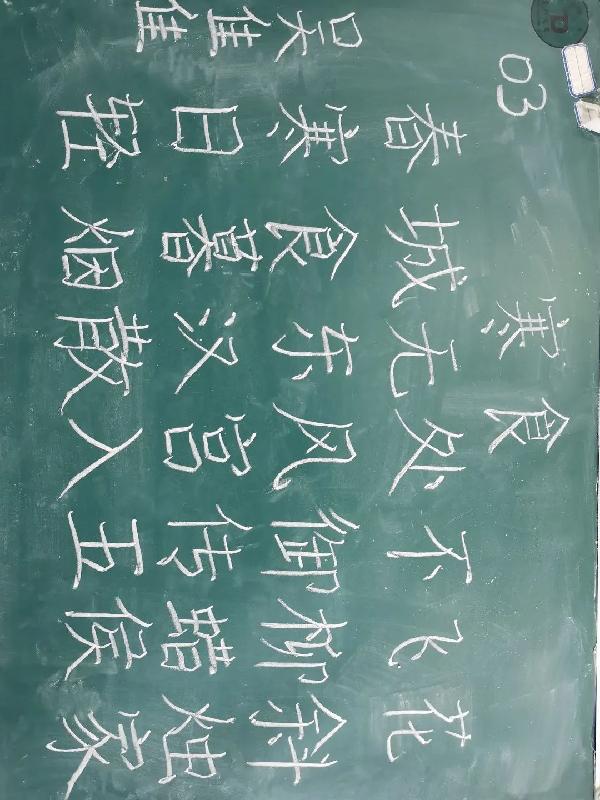 03
寒食
春城无处不飞花
寒食东风御柳斜
日暮汉宫传蜡烛
轻烟散入五侯家
吴佳佳